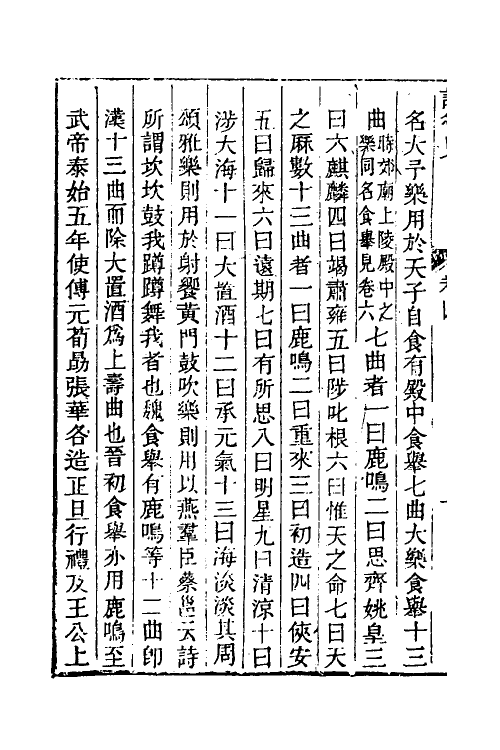 名大予樂用於天子自食有殿中食舉七曲大樂食舉十三
曲時郊廟上陵殿中之樂同名食舉見卷六七曲者一曰鹿鳴二曰思齊姚皇三
曰六麒麟四曰竭肅雍五曰陟叱根六曰惟天之命七曰天
之厤數十三曲者一曰鹿鳴二曰重來三曰初造四曰俠安
五曰歸來六曰遠期七曰有所思八曰明星九曰清涼十曰
涉大海十一曰大置酒十二曰承元氣十三曰海淡淡其周
頌雅樂則用於射饗黃門鼓吹樂則用以燕羣臣蔡邕云詩
所謂坎坎鼓我蹲蹲舞我者也魏食舉有鹿鳴等十二曲卽
漢十三曲而除大置酒爲上壽曲也晉初食舉亦用鹿鳴至
武帝泰始五年使傅元荀勗張華各造正旦行禮及王公上